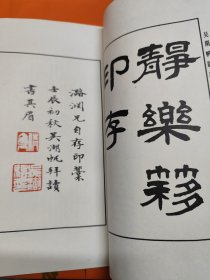 靜樂簃
印存
潞淵兄自存印藁
壬辰初秋吳湖帆拜讀
書其眉